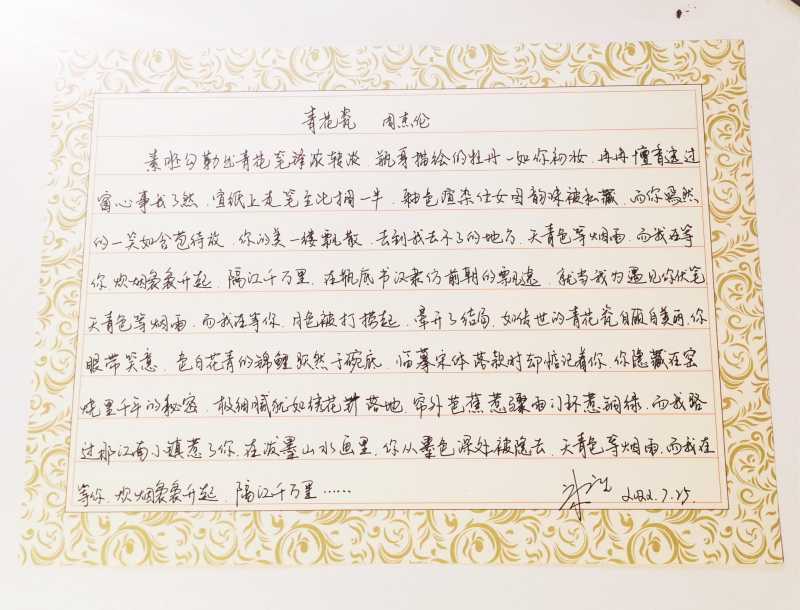 青花瓷 周杰伦
素胚勾勒出青花笔锋浓转淡 瓶身描绘的牡丹一如你初妆 冉冉檀香透过
窗心事我了然 宣纸上走笔至此搁一半 釉色渲染仕女图韵味被私藏 而你嫣然
的一笑如含苞待放 你的美一缕飘散 去到我去不了的地方 天青色等烟雨 而我在等
你 炊烟袅袅升起 隔江千万里 在瓶底书汉隶仿前朝的飘逸 就当我为遇见你伏笔
天青色等烟雨 而我在等你 月色被打捞起 晕开了结局 如传世的青花瓷自顾自美丽 你
眼带笑意 色白花青的锦鲤跃然于碗底 临摹宋体落款时却惦记着你 你隐藏在窑
烧里千年的秘密 极细腻犹如绣花针落地 帘外芭蕉惹骤雨门环惹铜绿 而我路
过那江南小镇惹了你 在泼墨山水画里 你从墨色深处被隐去 天青色等烟雨 而我在
等你 炊烟袅袅升起 隔江千万里……
2022.7.25